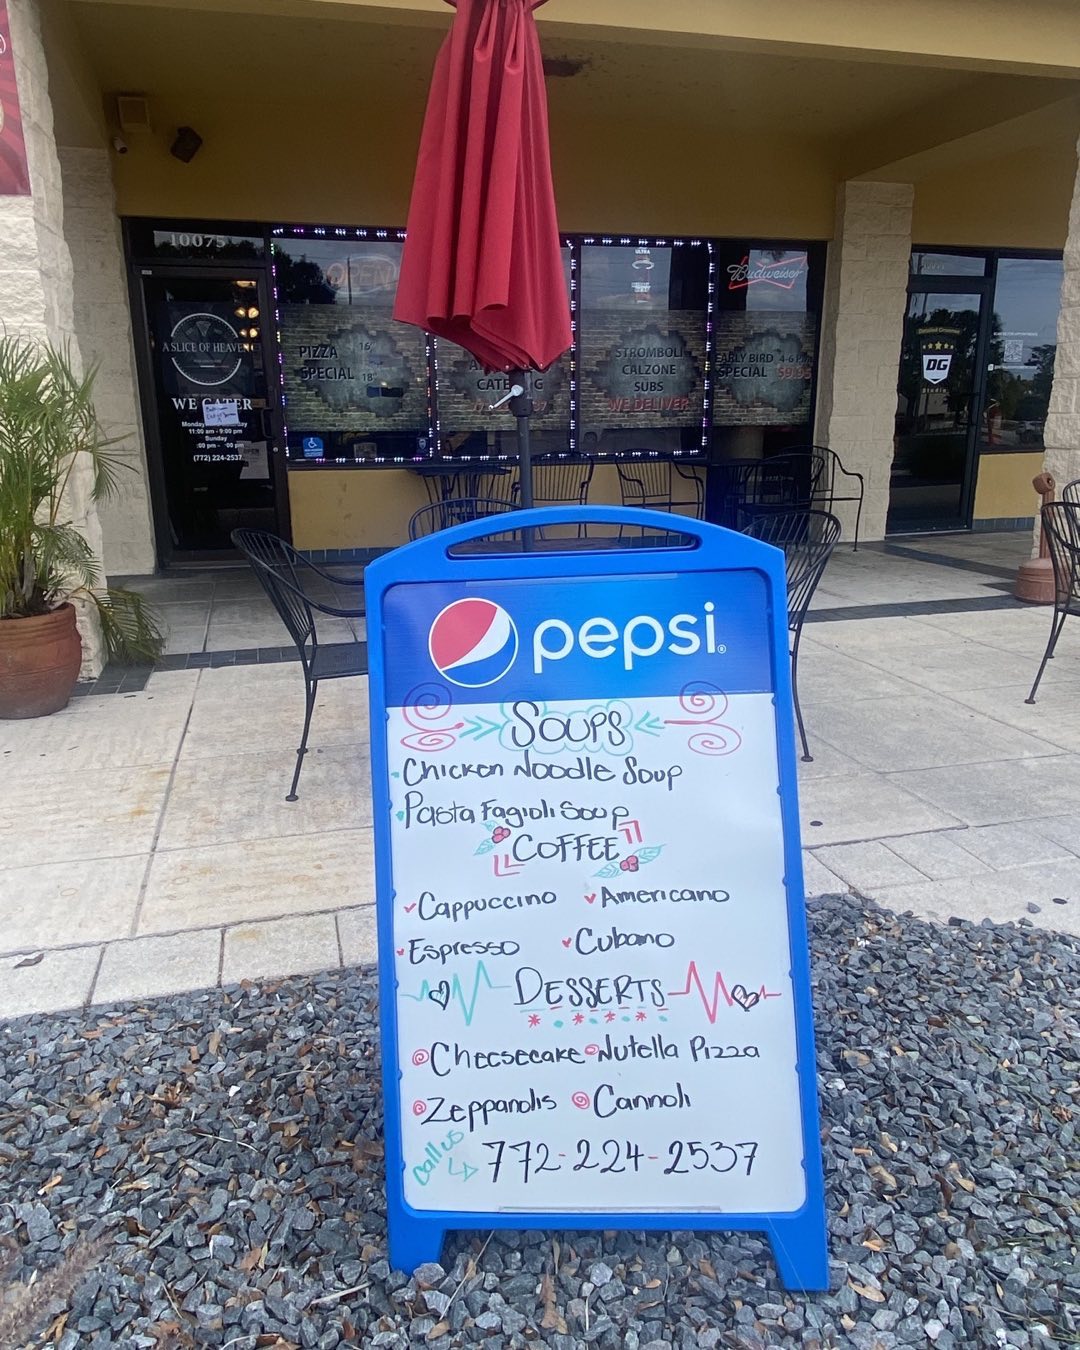 10075
OPEN
ULTRA
Budweiser
A SLICE OF HEAVEN
WE CATER
11:00 am - 9:00 pm
Sunday
(772) 224-2537
PIZZA 16"
SPECIAL 18"
CATERING
STROMBOLI
CALZONE
SUBS
WE DELIVER
EARLY BIRD 4-6 PM
SPECIAL $9.95
DG
Studio
pepsi
SOUPS
Chicken Noodle Soup
Pasta Fagioli Soup
COFFEE
Cappuccino Americano
Espresso Cubano
DESSERTS
Cheesecake Nutella Pizza
Zeppanolis Cannoli
Call us
772-224-2537